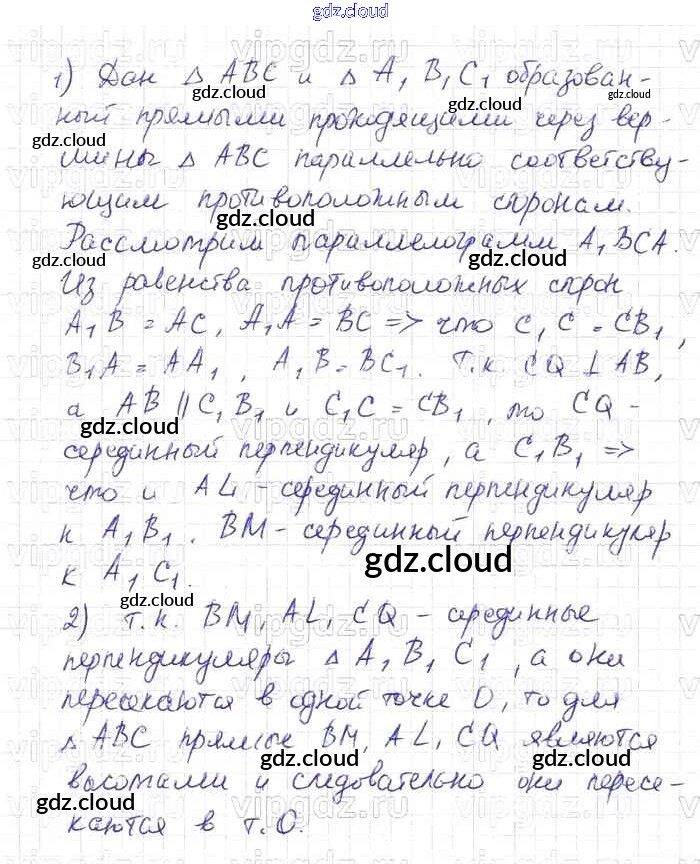 gdz.cloud
1) Дан △ ABC и △ A₁B₁C₁ образован-
ный прямыми проходящими через вер-
шины △ ABC параллельно соответству-
ющим противоположным сторонам.
Рассмотрим параллелограмм A₁BCA.
Из равенства противоположных сторон
A₁B = AC, A₁A = BC => что C₁C = CB₁,
B₁A = AA₁, A₁B = BC₁. Т.к. CQ ⊥ AB,
а AB ∥ C₁B₁ и C₁C = CB₁, то CQ -
серединный перпендикуляр, а C₁B₁ =>
что и AL - серединный перпендикуляр
к A₁B₁. BM - серединный перпендикуляр
к A₁C₁.
2) т.к. BM, AL, CQ - серединные
перпендикуляры △ A₁B₁C₁, а они
пересекаются в одной точке O, то для
△ ABC прямые BM, AL, CQ являются
высотами и следовательно они пересе-
каются в т.О.